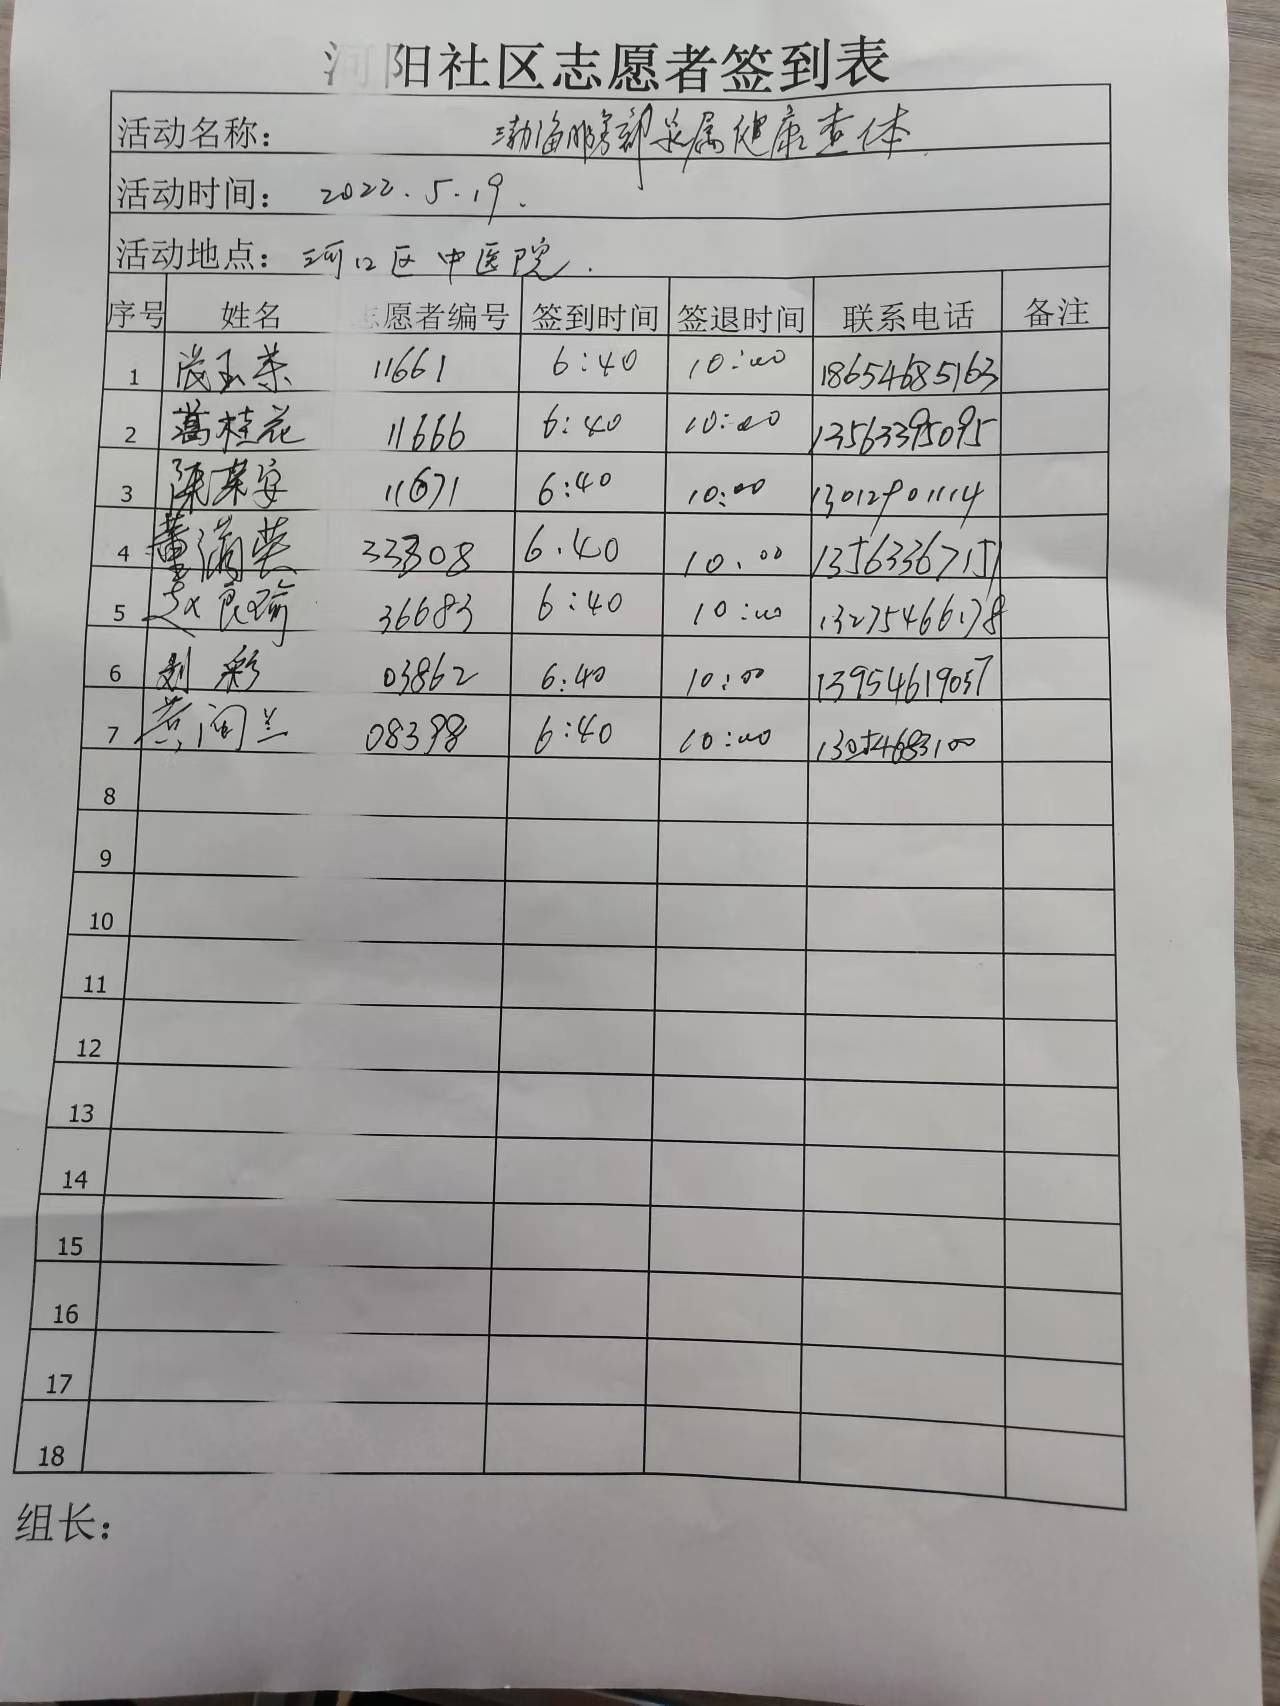 河阳社区志愿者签到表
活动名称： 渤海服务部家属健康查体
活动时间： 2022.5.19.
活动地点： 河口区中医院.
序号 姓名 志愿者编号 签到时间 签退时间 联系电话 备注
1 玉荣 11661 6:40 10:00 18654685163
2 葛桂花 11666 6:40 10:00 13563395095
3 陈荣安 11671 6:40 10:00 13012901114
4 董满英 33808 6.40 10.00 13563367151
5 赵良瑜 36683 6:40 10:00 13275466178
6 刘彩 03862 6:40 10:00 13954619057
7 黄润兰 08398 6:40 10:00 13054683100
8
9
10
11
12
13
14
15
16
17
18
组长：